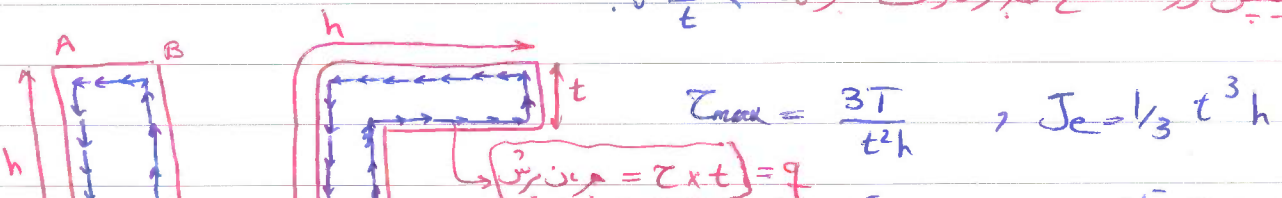 t
h
A B
h
t
τmax = 3T / t²h , Je = 1/3 t³ h
جریان برش = τ × t = q